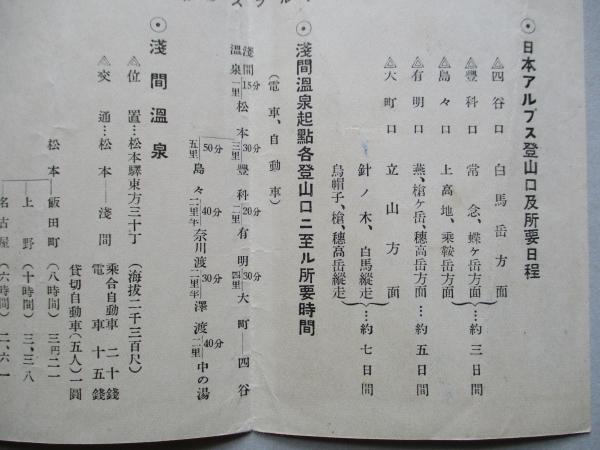 ◉日本アルプス登山口及所要日程
四谷口 白馬岳方面
豊科口 常念、蝶ヶ岳方面
島々口 上高地、乗鞍岳方面
…約三日間
有明口 燕、槍ヶ岳、穂高岳方面…約五日間
大町口 立山方面
針ノ木、白馬縦走
烏帽子、槍、穂高岳縦走
…約七日間
◉淺間溫泉起點各登山口ニ至ル所要時間
(電車、自動車)
淺間溫泉 15分 一里 松本 30分 三里 豊科 20分 二里 有明 30分 四里 大町─四谷
50分 五里 島々 40分 二里半 奈川渡 30分 二里半 澤渡 40分 二里 中の湯
◉淺間溫泉
位置…松本驛東方三十丁(海拔二千三百尺)
交通…松本─淺間
乗合自動車 二十錢
電車 十五錢
貸切自動車(五人)一圓
松本─飯田町(八時間)三円二一
─上野(十時間)三、三八
─名古屋(六時間)二、六一